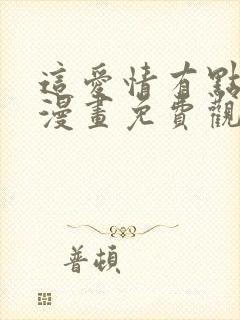 這愛情有點
漫畫免費觀
普頓